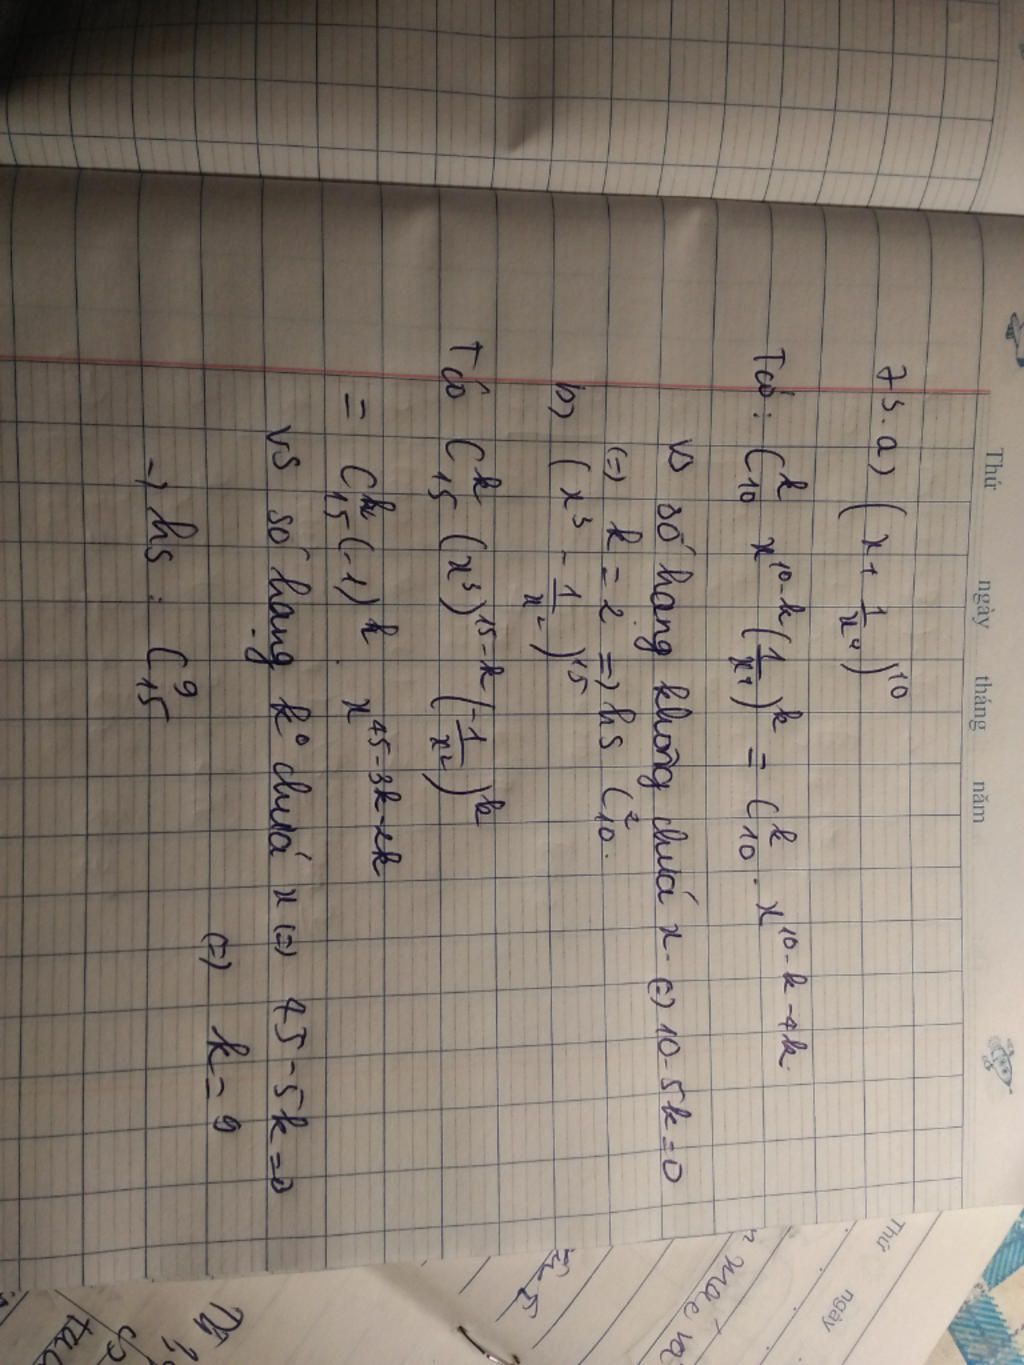 Thứ ngày tháng năm
73. a) (x + 1/x⁴)¹⁰
Tcó: C₁₀ᵏ x¹⁰⁻ᵏ (1/x⁴)ᵏ = C₁₀ᵏ . x¹⁰⁻ᵏ⁻⁴ᵏ.
Vs số hạng không chứa x (=) 10 - 5k = 0
(=) k = 2 =) hs C₁₀².
b) (x³ - 1/x²)¹⁵
Tcó C₁₅ᵏ (x³)¹⁵⁻ᵏ (-1/x²)ᵏ
= C₁₅ᵏ (-1)ᵏ . x⁴⁵⁻³ᵏ⁻²ᵏ
Vs số hạng k° chứa x (=) 45 - 5k = 0
(=) k = 9
-) hs : C₁₅⁹
Thứ ngày